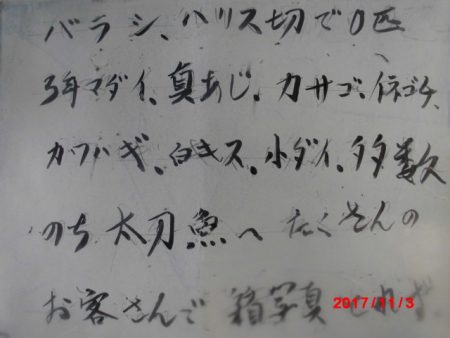 バラシ、ハリス切で0匹
3年マダイ、真あじ、カサゴ、イネゴチ、
カワハギ、白キス、小ダイ、多数
のち 太刀魚へ たくさんの
お客さんで 箱写真 とれず
2017/11/3